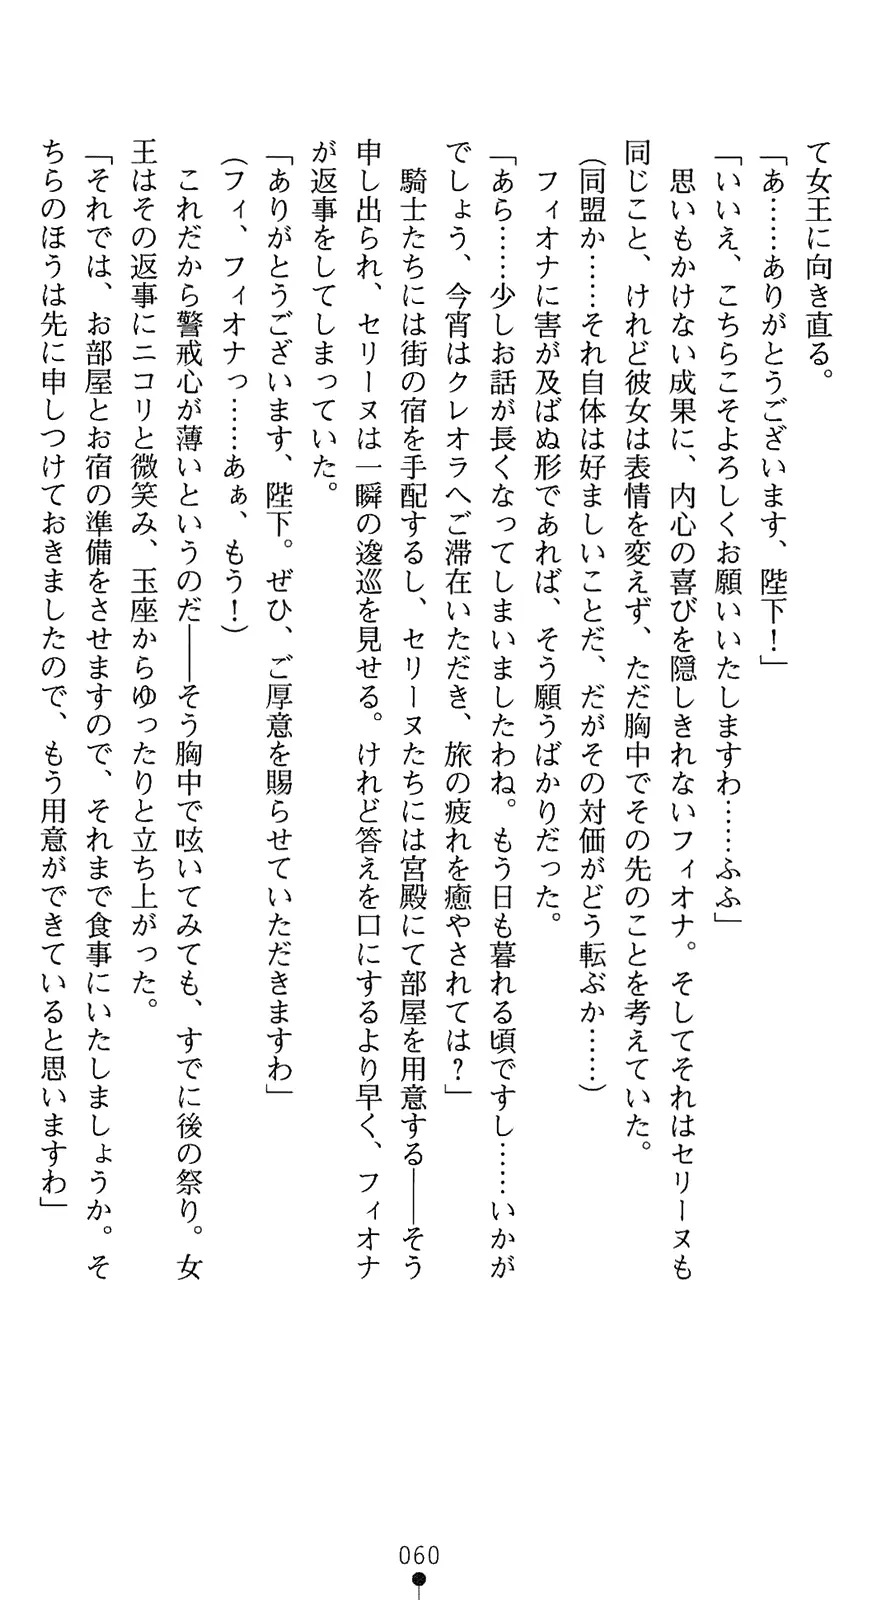 て女王に向き直る。
「あ……ありがとうございます、陛下！」
「いいえ、こちらこそよろしくお願いいたしますわ……ふふ」
　思いもかけない成果に、内心の喜びを隠しきれないフィオナ。そしてそれはセリーヌも
同じこと、けれど彼女は表情を変えず、ただ胸中でその先のことを考えていた。
（同盟か……それ自体は好ましいことだ、だがその対価がどう転ぶか……）
　フィオナに害が及ばぬ形であれば、そう願うばかりだった。
「あら……少しお話が長くなってしまいましたわね。もう日も暮れる頃ですし……いかが
でしょう、今宵はクレオラへご滞在いただき、旅の疲れを癒やされては？」
　騎士たちには街の宿を手配するし、セリーヌたちには宮殿にて部屋を用意する――そう
申し出られ、セリーヌは一瞬の逡巡を見せる。けれど答えを口にするより早く、フィオナ
が返事をしてしまっていた。
「ありがとうございます、陛下。ぜひ、ご厚意を賜らせていただきますわ」
（フィ、フィオナっ……あぁ、もう！）
　これだから警戒心が薄いというのだ――そう胸中で呟いてみても、すでに後の祭り。女
王はその返事にニコリと微笑み、玉座からゆったりと立ち上がった。
「それでは、お部屋とお宿の準備をさせますので、それまで食事にいたしましょうか。そ
ちらのほうは先に申しつけておきましたので、もう用意ができていると思いますわ」
060